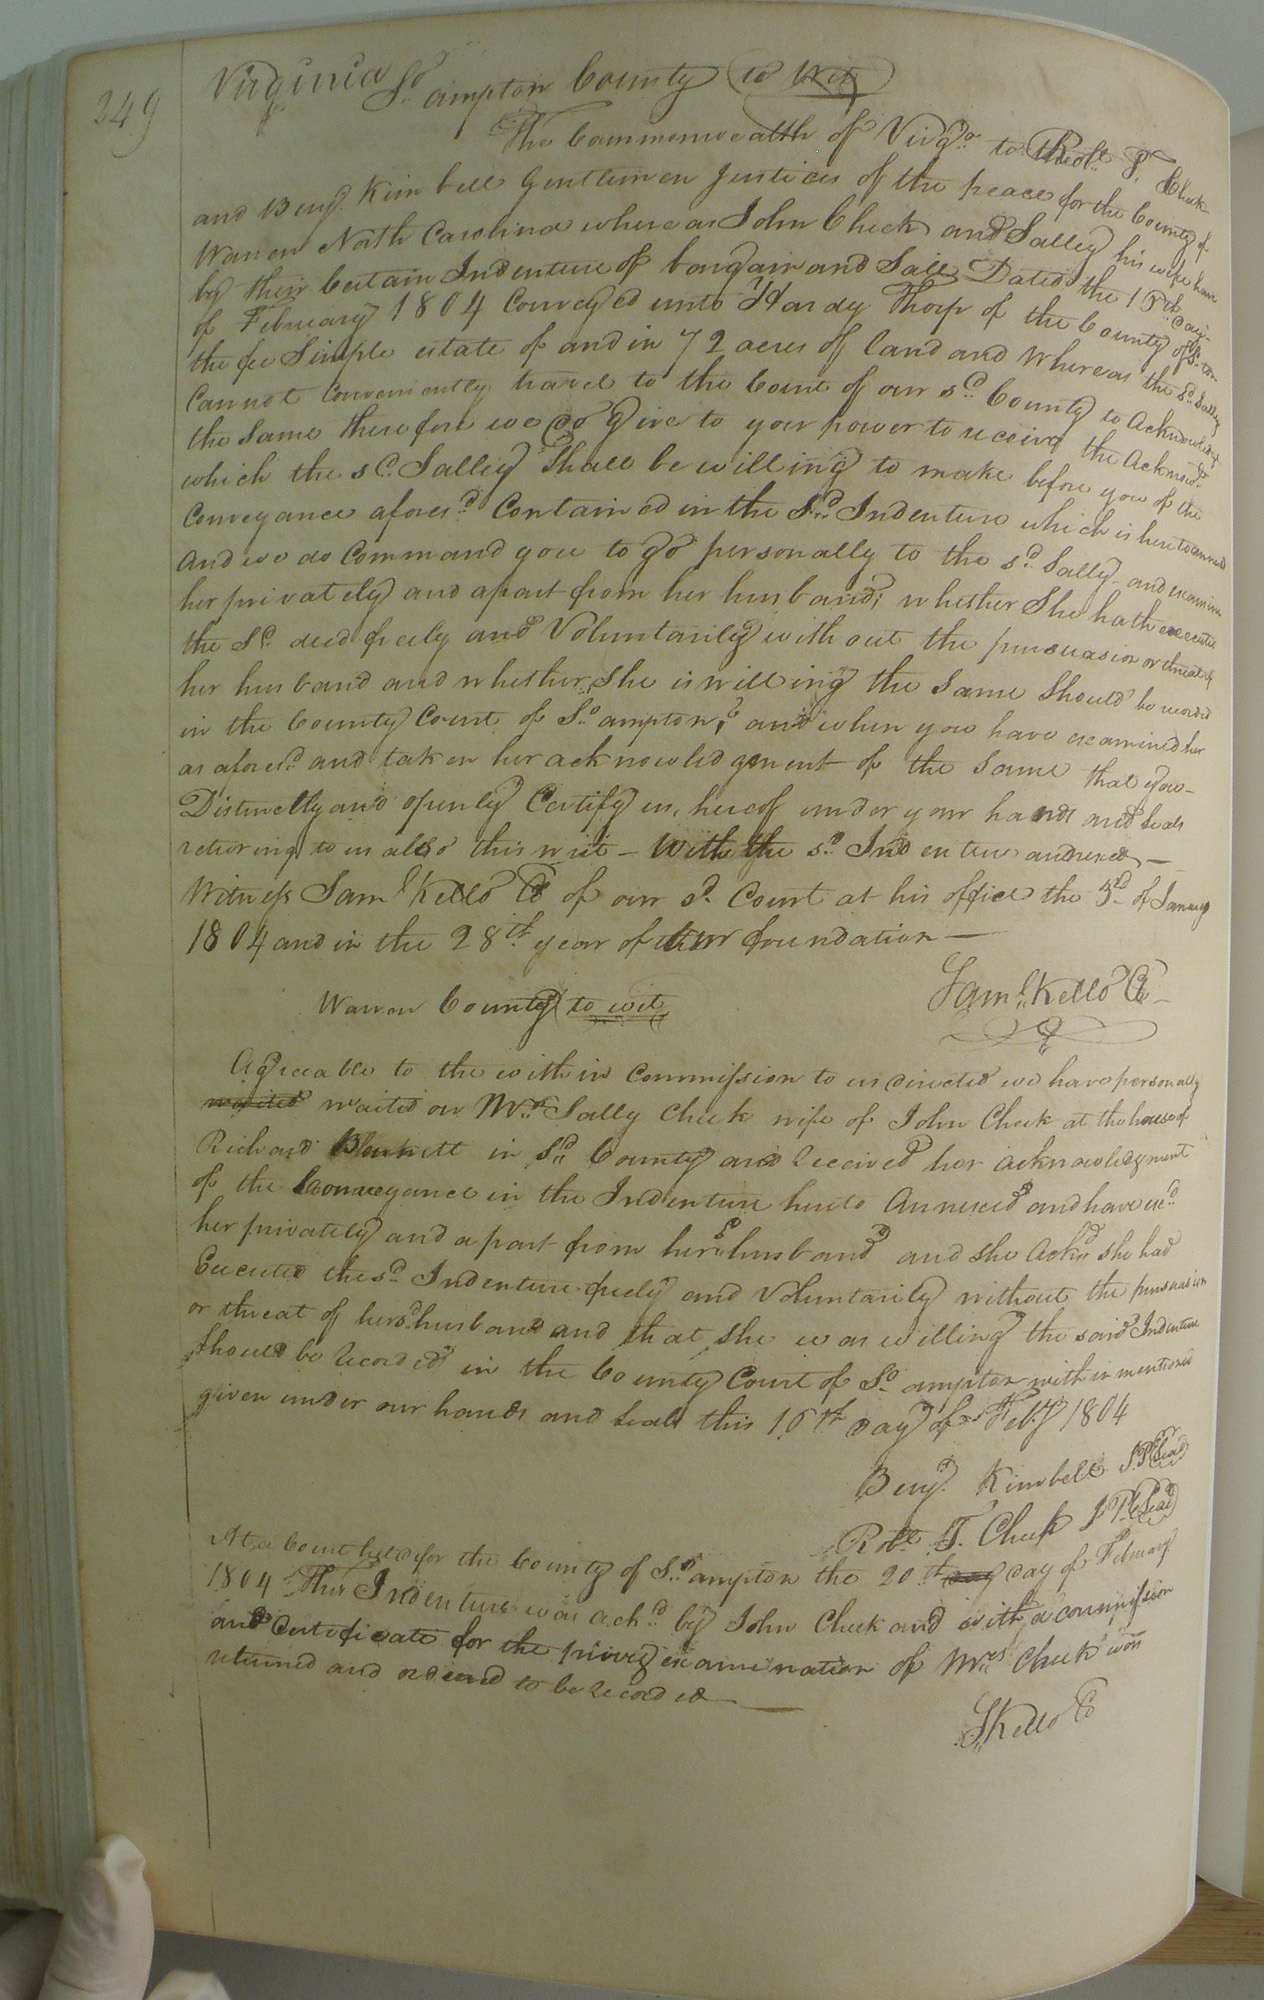 249
Virginia So. ampton County to Wit
The Commonwealth of Virga. to Robt. T. Cheek
and Benj. Kimbell Gentlemen Justices of the peace for the County of
Warren North Carolina whereas John Cheek and Salley his wife have
by their Certain Indenture of bargain and Sale Dated the day
of February 1804 Conveyed unto Hardy Thorp of the County of So. ton
the fee Simple estate of and in 72 acres of land and Whereas the sd. Salley
Cannot Conveniently travel to the Court of our sd. County to Acknowledge
the Same therefore we do Give to your power to receive the Acknowt.
which the sd. Salley Shall be willing to make before you of the
Conveyance aforesd. Contained in the Sd. Indenture which is hereto annexed
And we do Command you to go personally to the sd. Sally and examine
her privately and apart from her husband, whether She hath executed
the Sd. deed freely and Voluntarily without the persuasion or threat of
her husband and whether She is willing the Same Should be recorded
in the County Court of So. ampton, and when you have examined her
as aforesd. and taken her acknowledgment of the Same that you
Distinctly and openly Certify us, hereof under your hands and Seals
returning to us also this writ - With the sd. Indenture annexed -
Witness Saml. Kello C of our sd. Court at his office the 3rd of January
1804 and in the 28th. year of our foundation -
Saml. Kello C
Warren County to wit
Agreeable to the within Commission to us directed we have personally
waited waited on Mrs. Sally Cheek wife of John Cheek at the house of
Richard in Sd. County and Received her acknowledgment
of the Conveyance in the Indenture hereto Annexed and have exd.
her privately and apart from her sd. husband and she Ackd. she had
Executed the sd. Indenture freely and Voluntarily without the persuasion
or threat of her sd. husband and that she was willing the said Indenture
Should be Recorded in the County Court of So. ampton within mentioned
given under our hands and Seals this 16th day of Feby 1804
Benj. Kimbell J.P. (Seal)
Robt. T. Cheek J.P. (Seal)
At a Court held for the County of So. ampton the 20th day day of February
1804. This Indenture was ackd. by John Cheek and with a commission
and Certificate for the privy examination of Mrs. Cheek was
returned and ordered to be Recorded
S. Kello C